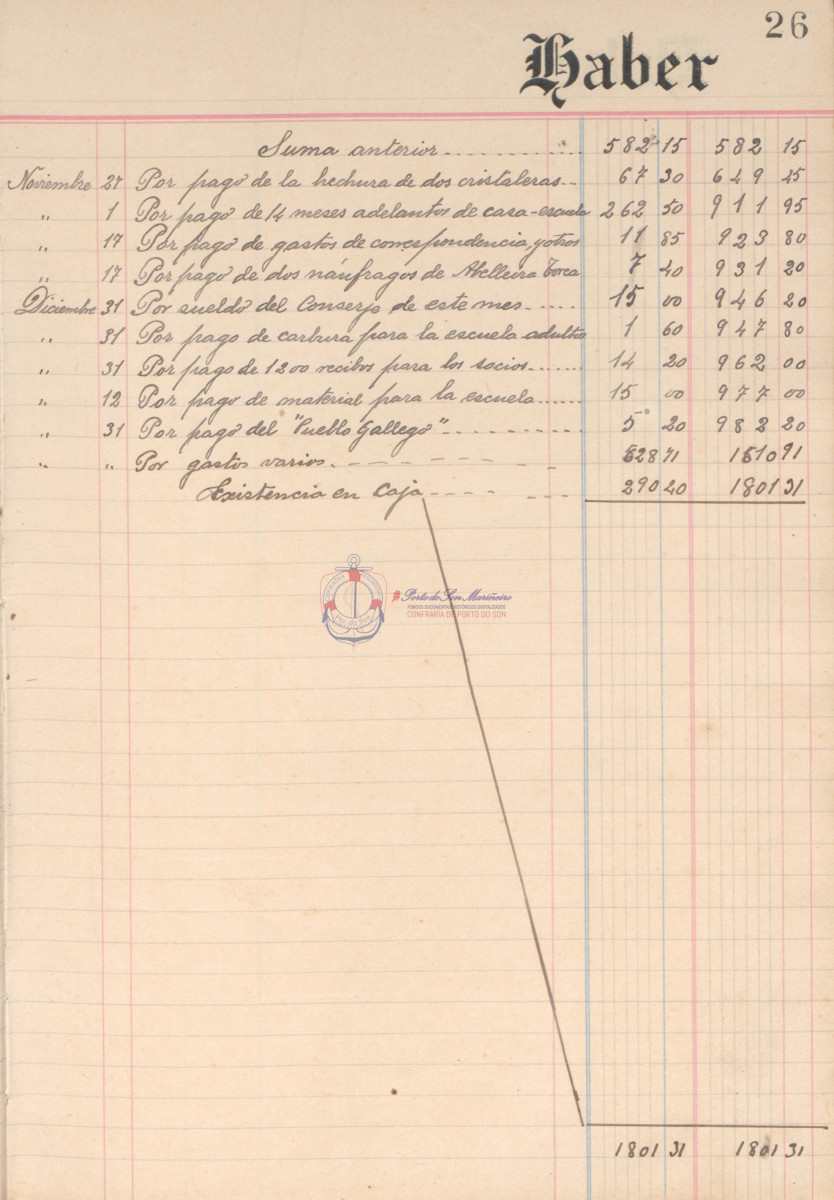 26
Haber
Suma anterior 582 15 582 15
Noviembre 27 Por pago de la hechura de dos cristaleras 67 30 649 45
" 1 Por pago de 14 meses adelantos de casa-escuela 262 50 911 95
" 17 Por pago de gastos de correspondencia, y otros 11 85 923 80
" 17 Por pago de dos náufragos de Abelleira 7 40 931 20
Diciembre 31 Por sueldo del Conserje de este mes 15 00 946 20
" 31 Por pago de carburo para la escuela adultos 1 60 947 80
" 31 Por pago de 1200 recibos para los socios 14 20 962 00
" 12 Por pago de material para la escuela 15 00 977 00
" 31 Por pago del "Pueblo Gallego" 5 20 982 20
" " Por gastos varios 528 71 1510 91
Existencia en Caja 290 40 1801 31
#Porto do Son Mariñeiro
FONDOS DOCUMENTAIS HISTÓRICOS DIXITALIZADOS
CONFRARÍA DE PORTO DO SON
1801 31 1801 31